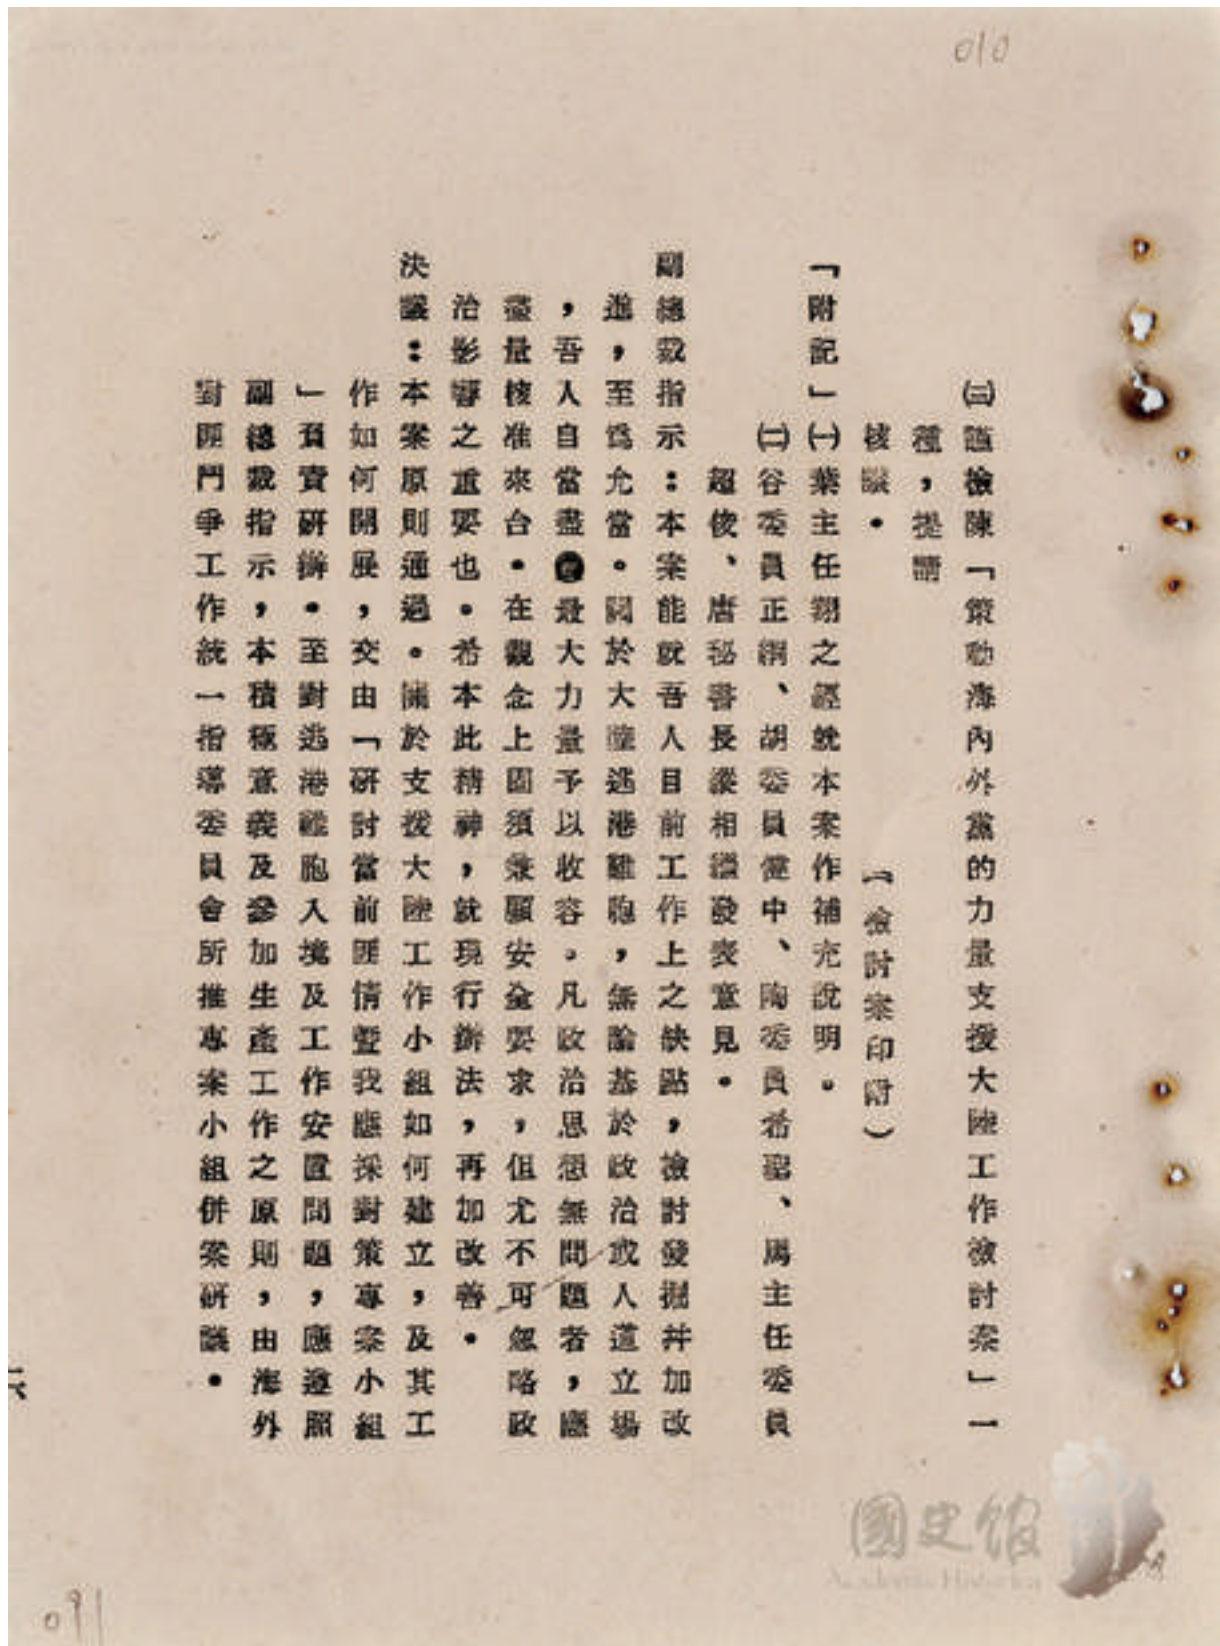 010
㈢謹檢陳「策動海內外黨的力量支援大陸工作檢討案」一
種，提請
核議。　　　　　　　　（檢討案印附）
「附記」㈠葉主任翔之經就本案作補充說明。
㈡谷委員正綱、胡委員健中、陶委員希聖、馬主任委員
超俊、唐秘書長縱相繼發表意見。
副總裁指示：本案能就吾人目前工作上之缺點，檢討發掘并加改
進，至為允當。關於大陸逃港難胞，無論基於政治或人道立場
，吾人自當盡最大力量予以收容。凡政治思想無問題者，應
盡量核准來台。在觀念上固須兼顧安全要求，但尤不可忽略政
治影響之重要也。希本此精神，就現行辦法，再加改善。
決議：本案原則通過。關於支援大陸工作小組如何建立，及其工
作如何開展，交由「研討當前匪情暨我應採對策專案小組
」負責研辦。至對逃港難胞入境及工作安置問題，應遵照
副總裁指示，本積極意義及參加生產工作之原則，由海外
對匪鬥爭工作統一指導委員會所推專案小組併案研議。
國史館
Academia Historica
091